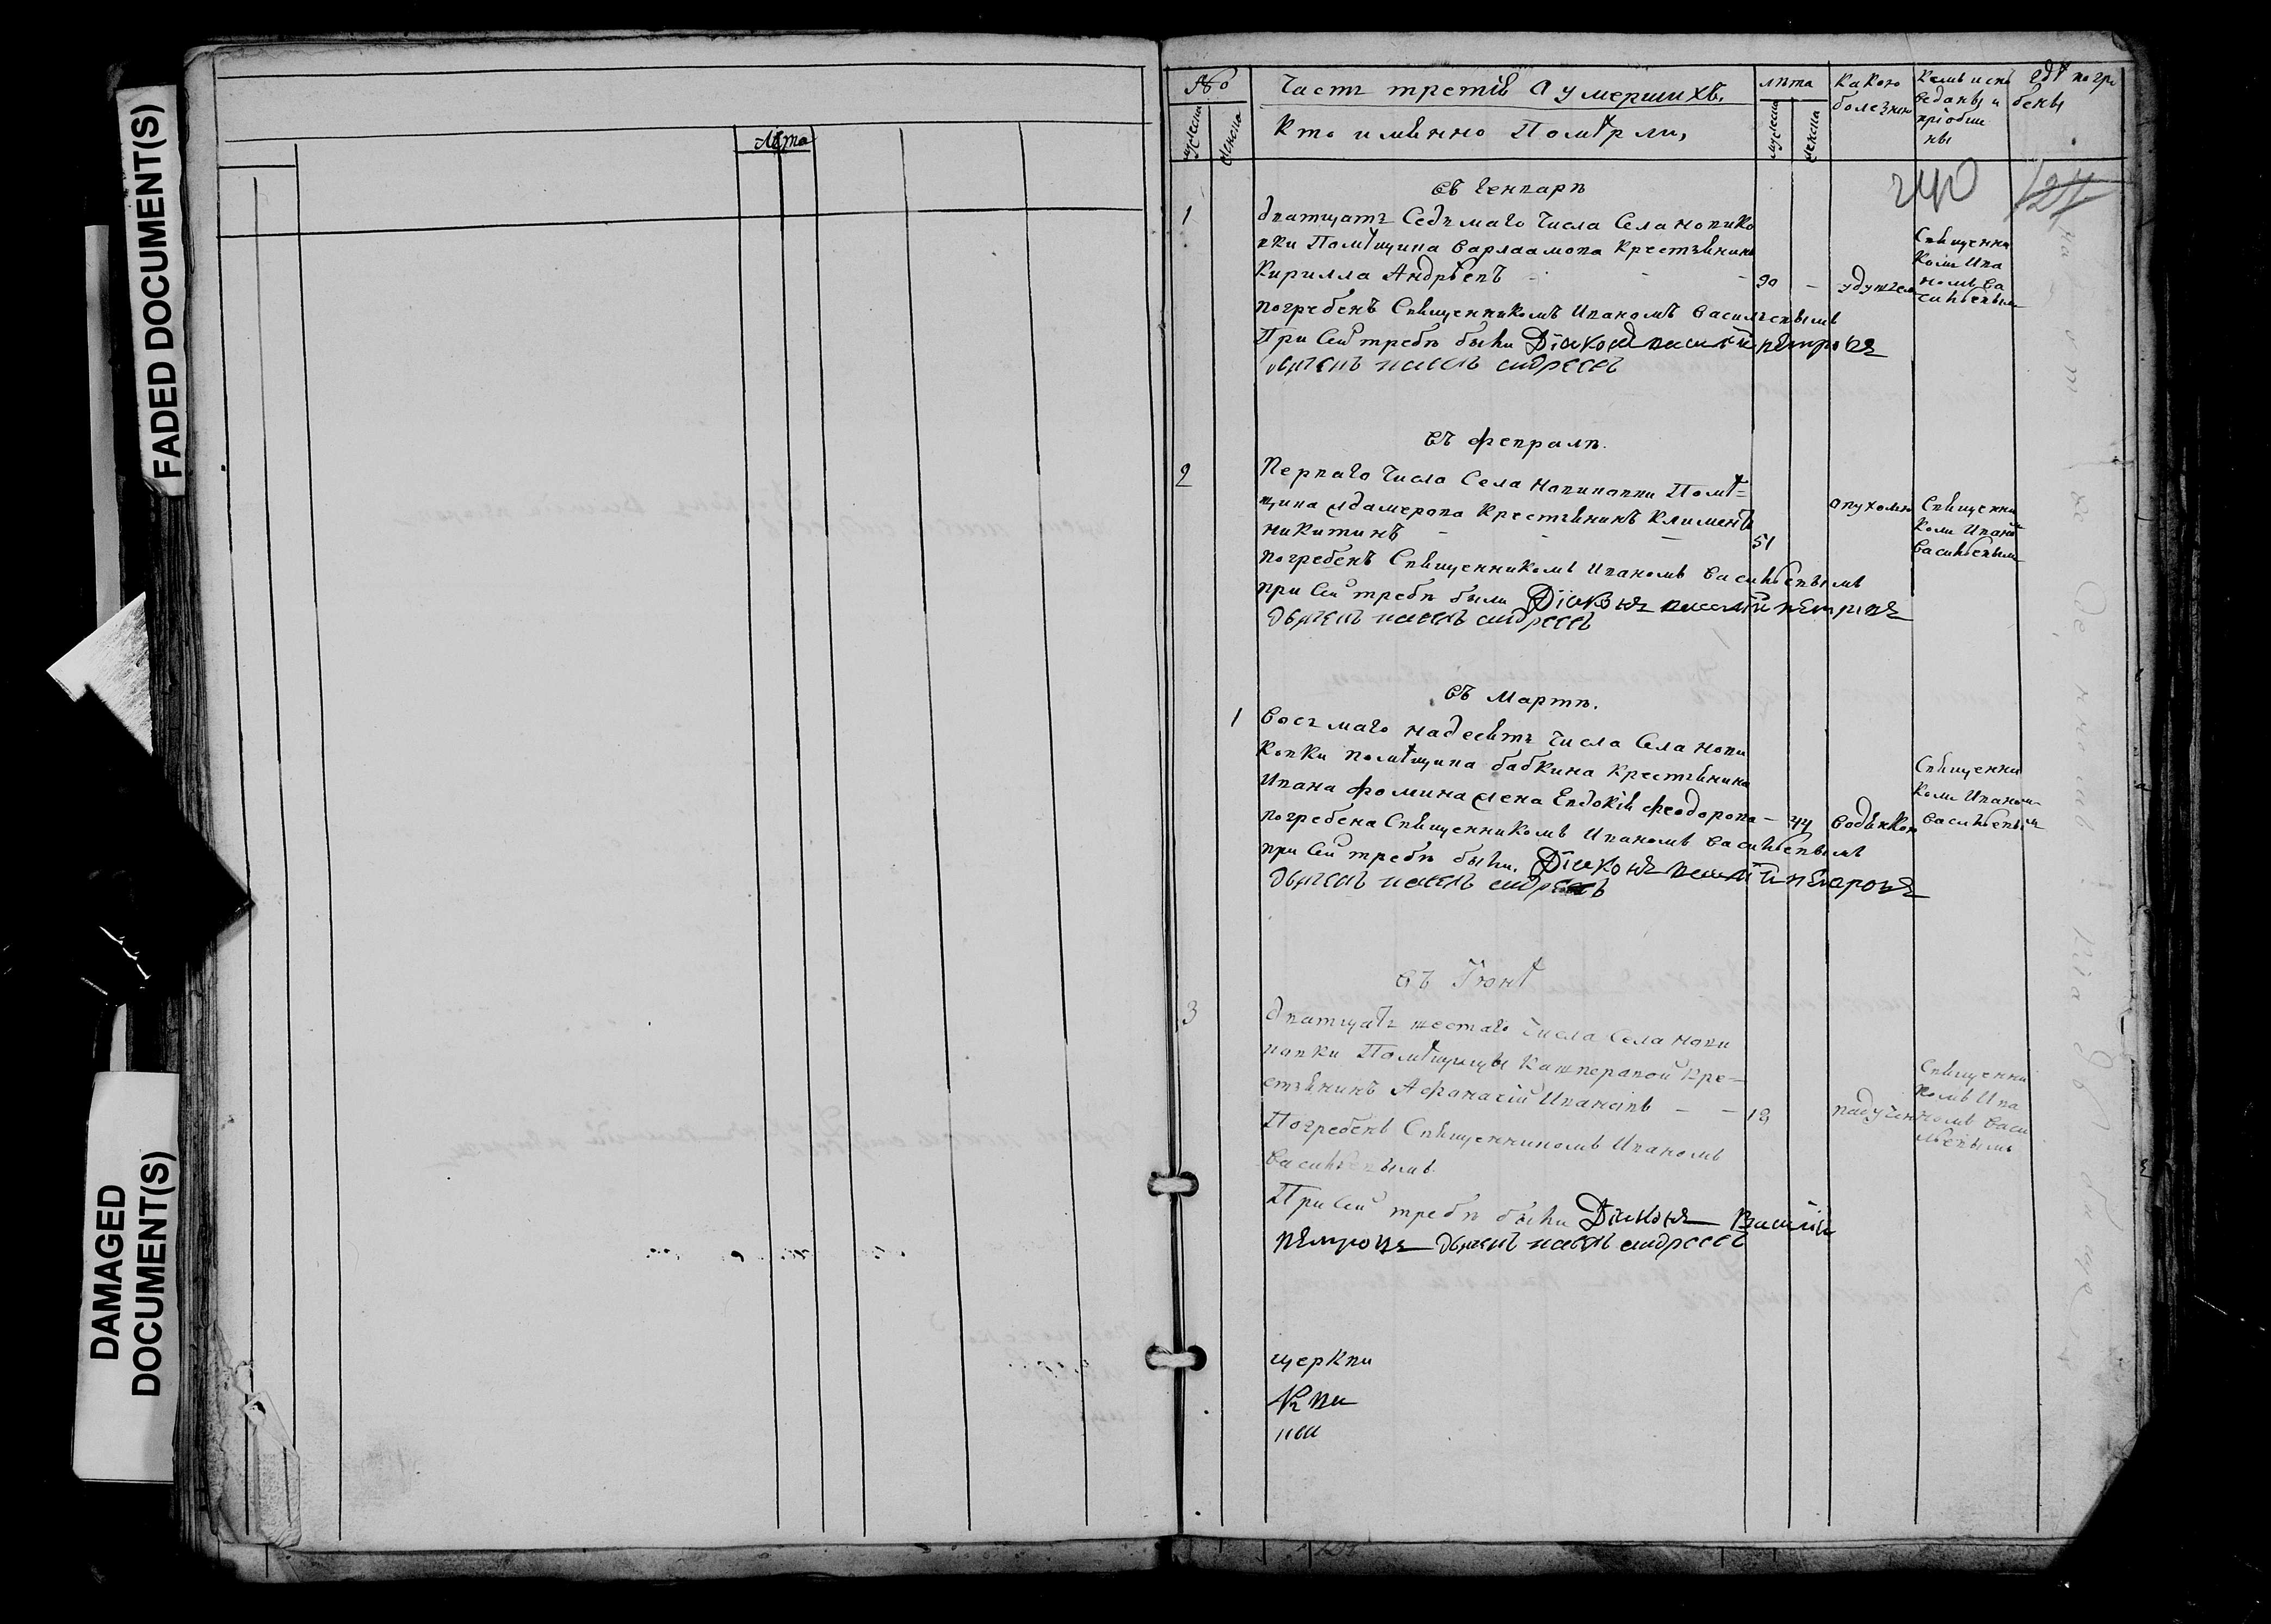 FADED DOCUMENT(S)
DAMAGED
DOCUMENT(S)
Лѣта
№
Часть третія о умершихъ.
Кто именно Помѣрли,
мужеска
женска
лѣта
мужеска
женска
какою
болезнию
Кемъ испо
ведани и
пріобще
ны
гдѣ погре
бены
240
въ Генваре
1
дватцать Седьмаго Числа Села Новико
вки Помѣщика Варлаамова Крестьянинъ
Кирилла Андрѣевъ
90
удушьем
Священни
комъ Ива
номъ Ва
сильевым
погребенъ Священникомъ Иваномъ Васильевымъ
При сей требе были Діаконъ василій петровъ
дьячекъ павелъ андреевъ
въ феврале.
2
Перваго Числа Села Новиковки Помѣ=
щика Адамерова Крестьянинъ Климентъ
Никитинъ
51
опухолью
Священни
комъ Иваном
Васильевым
погребенъ Священникомъ Иваномъ Васильевымъ
при сей требе были Діаконъ василій петровъ
дьячекъ павелъ андреевъ
въ Марте.
1
Восьмаго надесять Числа Села Нови
ковки помѣщика бабкина Крестьянина
Ивана фомина жена Евдокія феодорова
44
водянкою
Священни
комъ Иваном
Васильевым
погребена Священникомъ Иваномъ Васильевымъ
при сей требе были. Діаконъ василій петровъ
дьячекъ павелъ андреевъ
въ Іюнѣ
3
дватцать шестаго Числа Села Нови
ковки Помѣщицы Кашперовой Кре=
стьянинъ Афанасій Ивановъ
Священни
комъ Ива
номъ Васи
льевымъ
падучею
Погребенъ Священникомъ Иваномъ
Васильевымъ
При сей требе были Діаконъ Василій
петровъ дьячекъ павелъ андреевъ
церкви